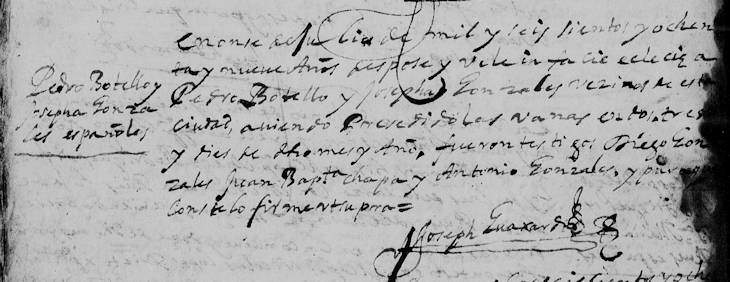 Pedro Botello y
Josepha Gonza
les españoles
en onse de Julio de mil y seis sientos y ochen
ta y nueve Años despose y vele in facie eclecia a
Pedro Botello y Josepha Gonzales vezinos de esta
ciudad, aviendo Presedido las vanas en dos, tres
y dies de dho mes y Año, fueron testigos Diego Gon
zales Juan Bapta chapa y Antonio Gonzales, y para q
Conste lo firme ut supra =
Joseph Guaxardo